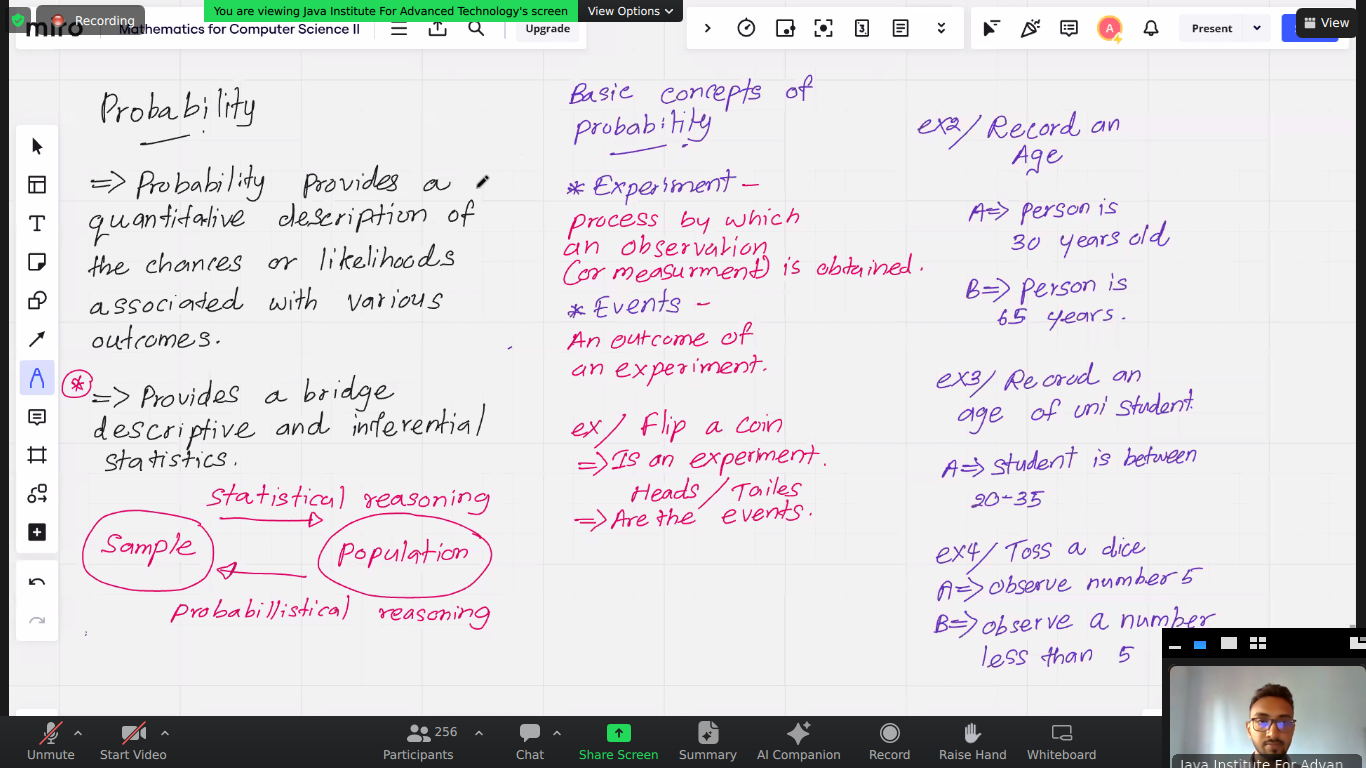 Recording
You are viewing Java Institute For Advanced Technology's screen
View Options
View
miro
Mathematics for Computer Science II
Upgrade
3
A
Present
Probability
=> Probability provides a
quantitative description of
the chances or likelihoods
associated with various
outcomes.
* => Provides a bridge
descriptive and inferential
statistics.
Statistical reasoning
Sample
population
Probabillistical reasoning
Basic concepts of
probability
* Experiment -
process by which
an observation
(or measurment) is obtained.
* Events -
An outcome of
an experiment.
ex/ Flip a coin
=> Is an experiment.
Heads / Tailes
=> Are the events.
ex2/ Record an
Age
A=> person is
30 years old
B=> person is
65 years.
ex3/ Recorod an
age of uni student.
A=> student is between
20-35
ex4/ Toss a dice
A=> observe number 5
B=> observe a number
less than 5
Unmute
Start Video
Participants
256
Chat
Share Screen
Summary
AI Companion
Record
Raise Hand
Whiteboard
Java Institute For Advan